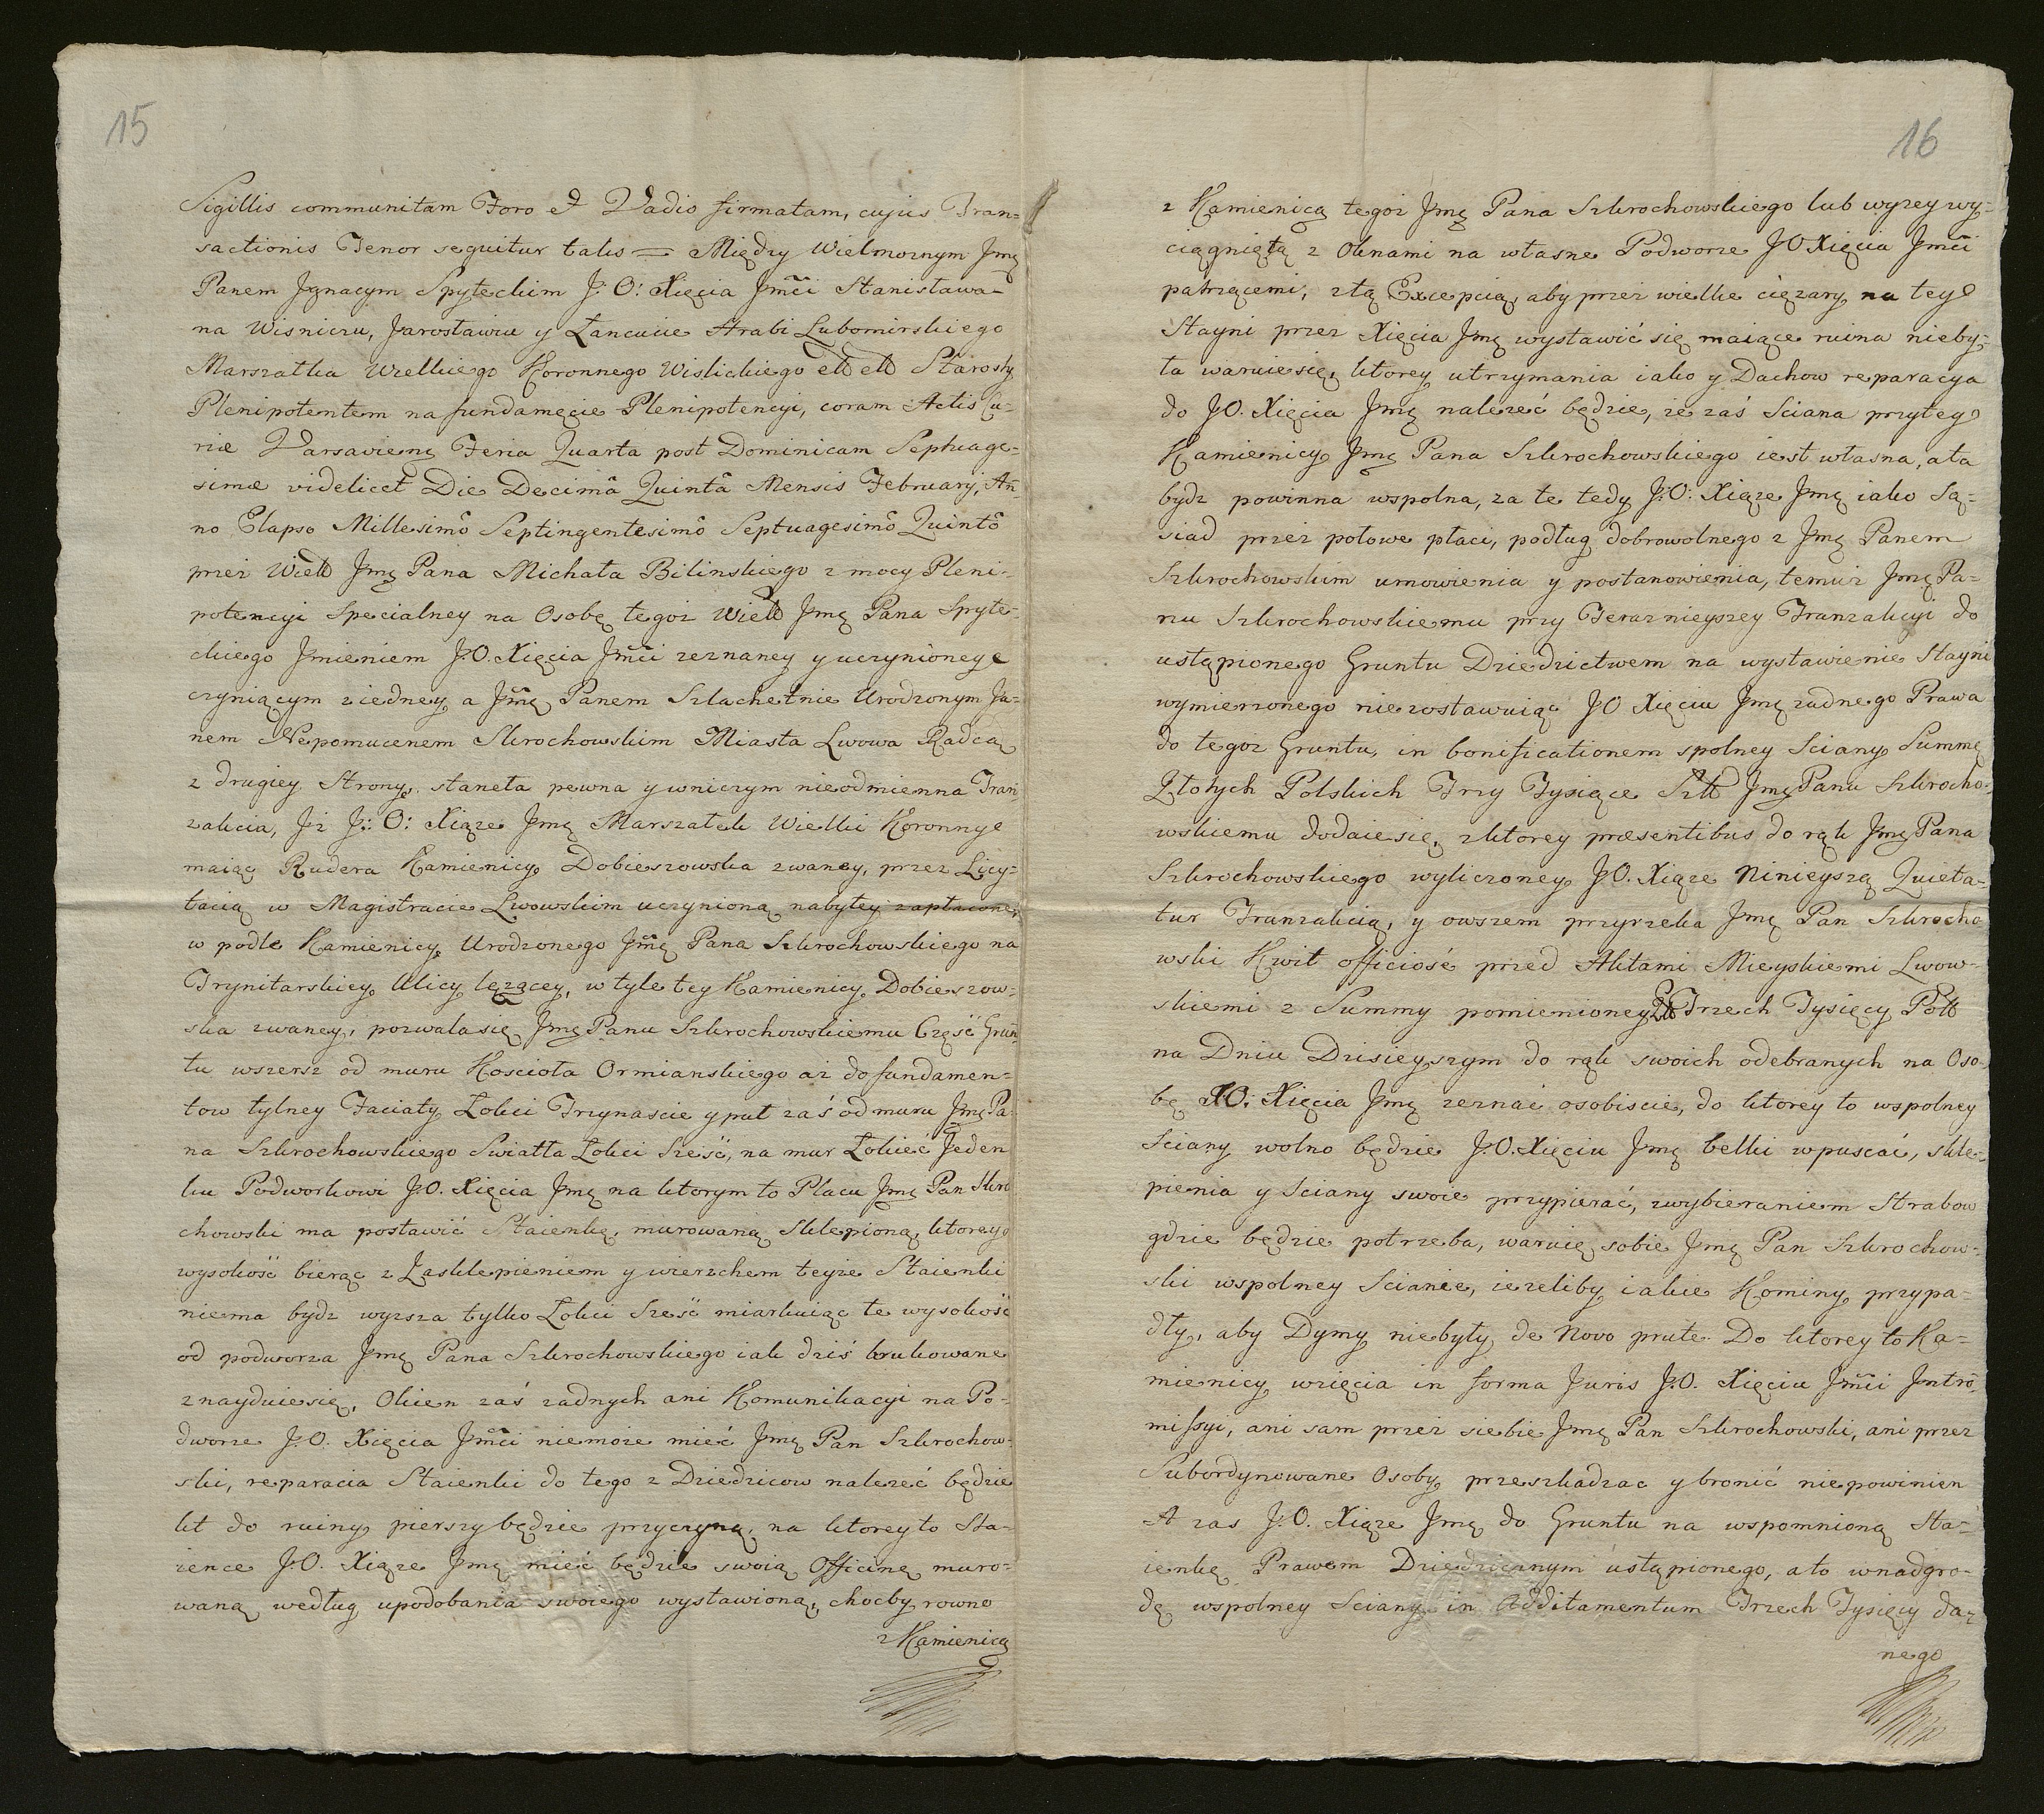 15
Sigillis communitam Foro et Vadio firmatam, cujus Tran-
sactionis Tenor sequitur talis = Między Wielmoznym Jmę
Panem Jgnacym Spyteckim J: O: Xięcia Jmći Stanisława
na Wisniczu, Jarosławiu y Łancucie Hrabi Lubomirskiego
Marszałka Wielkiego Koronnego Wislickiego ett ett Starosty
Plenipotentem na fundamęcie Plenipotencyi, coram Actis Cu-
riæ Varsaviensi Feria Quarta post Dominicam Septuage-
simæ videlicet Die Decimâ Quintâ Mensis February, An-
no Elapso Millesimô Septingentesimô Septuagesimô Quintô
przez Wiell Jmę Pana Michała Bilinskiego z mocy Pleni-
potencyi Specialney na Osobę tegoz Wiell Jmę Pana Spyte-
ckiego Jmieniem J.O. Xięcia Jmći zeznaney y uczynioney
czyniącym ziedney, a Jmę Panem Szlachetnie Urodzonym Ja-
nem Nepomucenem Skrochowskim Miasta Lwowa Radcą
z drugiey Strony, staneła pewna y wniczym nieodmienna Tran-
zakcia, Jż J: O: Xiąze Jmę Marszałek Wielki Koronny
maiąc Rudera Kamienicy Dobieszowska zwaney, przez Licy-
tacią w Magistracie Lwowskim uczynioną nabytey zapłacone,
w podle Kamienicy Urodzonego Jmę Pana Szkrochowskiego na
Trynitarskiey Ulicy lęzącey, w tyle tey Kamienicy Dobieszow-
ska zwaney, pozwala się Jmę Panu Szkrochowskiemu Część Grun-
tu wszersz od muru Koscioła Ormianskiego az do fundamen-
tow tylney Faciaty Łokci Trzynascie y puł zaś od muru Jmę Pa-
na Szkrochowskiego Swiatła Łokci Sześć, na mur Łokieć Jeden
ku Podworkowi J.O. Xięcia Jmę na ktorym to Placu Jmę Pan Skro
chowski ma postawić Staienkę, murowaną Sklepioną, ktorey
wysokość bierąc z Zasklepieniem y wierzchem teyze Staienki
niema bydz wyzsza tylko Łokci Sześć miarkuiąc te wysokość
od podworza Jmę Pana Szkrochowskiego iak dziś brukowane
znayduie się, Okien zaś zadnych ani Komunikacyi na Po-
dworze J.O. Xięcia Jmći niemoze mieć Jmę Pan Szkrochow-
ski, reparacia Staienki do tego z Dziedzicow nalezeć będzie
kt do ruiny pierszy będzie przyczyną, na ktorey to Sta-
ience J.O. Xiąze Jmę mieć będzie swoią Officinę muro-
waną według upodobania swoiego wystawioną, choćby rowno
z Kamienicą
16
z Kamienicą tegoz Jmę Pana Szkrochowskiego lub wyzey wy-
ciągniętą z Oknami na własne Podworze J O Xięcia Jmći
patrzącemi, z tą Excepcią, aby przez wielkie cięzary na tey
Stayni przez Xięcia Jmę wystawić się maiące ruina nieby-
ła waruie się, ktorey utrzymania iako y Dachow reparacya
do J O. Xięcia Jmę nalezeć będzie, ze zaś Sciana przytey
Kamienicy Jmę Pana Szkrochowskiego iest własna, a ta
bydz powinna wspolna, za te tedy J: O: Xiąze Jmę iako Są-
siad przez połowe płaci, podług dobrowolnego z Jmę Panem
Szkrochowskim umowienia y postanowienia, temuz Jmę Pa-
nu Szkrochowskiemu przy Teraznieyszey Tranzakcyi do
ustąpionego Gruntu Dziedzictwem na wystawienie Stayni
wymierzonego niezostawuiąc J O Xięciu Jmę zadnego Prawa
do tegoz Gruntu, in bonificationem spolney Sciany Summę
Złotych Polskich Trzy Tysiące Sztt Jmę Panu Szkrocho-
wskiemu dodaie się, z ktorey præsentibus do rąk Jmę Pana
Szkrochowskiego wyliczoney J.O. Xiąze Ninieyszą Quieta-
tur Tranzakcią, y owszem przyrzeka Jmę Pan Szkrocho
wski Kwit officiosé przed Aktami Mieyskiemi Lwow-
skiemi z Summy pomienioney Złł Trzech Tysięcy Poll
na Dniu Dzisieyszym do rąk swoich odebranych na Oso-
bę J.O. Xięcia Jmę zeznać osobiscie, do ktorey to wspolney
Sciany wolno będzie J.O. Xięciu Jmę belki wpuscać, skle-
pienia y Sciany swoie przypierać, z wybieraniem Strabow
gdzie będzie potrzeba, waruię sobie Jmę Pan Szkrochow-
ski wspolney Scianie, iezeliby iakie Kominy przypa-
dły, aby Dymy niebyły de Novo prute. Do ktorey to Ka-
mienicy wzięcia in forma Juris J.O. Xięciu Jmći Jntro-
missyi, ani sam przez siebie Jmę Pan Szkrochowski, ani przez
Subordynowane Osoby przeszkadzac y bronić niepowinien
A zas J.O. Xiąze Jmę do Gruntu na wspomnioną Sta-
ienkę Prawem Dziedzicznym ustąpionego, a to wnadgro-
dę wspolney Sciany in Additamentum Trzech Tysięcy da-
nego